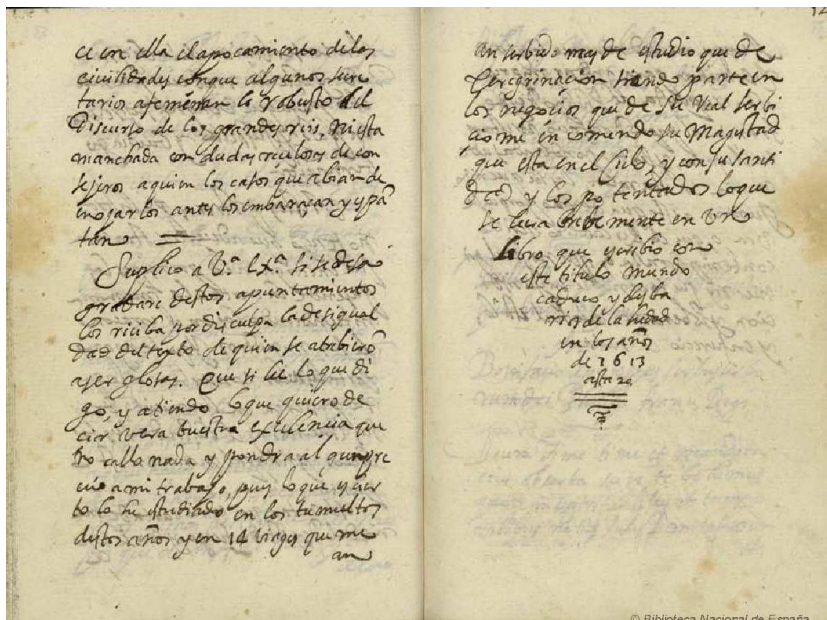 ce en ella el apocamiento de las
civilidades con que algunos secre
tarios afeminan lo robusto del
Discurso de los grandes reis, ni esta
manchada con dudas recelosas de con
sejeros a quien los casos que abian de
enojarlos antes los embaraçan y espã
tan
Suplico a V.ª Ex.ª si se desa
gradare destos apuntamientos
los reciba por disculpa la desigual
dad del texto de quien se atabierõ
a ser glosas. Que si lee lo que di
go, y atiendo lo que quiero de
cir vera vuestra excelencia que
no callo nada y pondra algun pre
cio a mi trabajo, pues lo que escri
to lo he estudiado en los tumultos
destos años y en 14 viages que me
an
an serbido mas de estudio que de
Peregrinacion siendo parte en
los negocios que de su Real serbi
cio me encomendo su Magestad
que esta en el Cielo, y con su santi
dad y los potentados lo que
se leera brebemente en un
Libro que escribio con
este titulo Mundo
caduco y desba
rios de la hedad
en los años
de 1613
asta 20
© Biblioteca Nacional de España